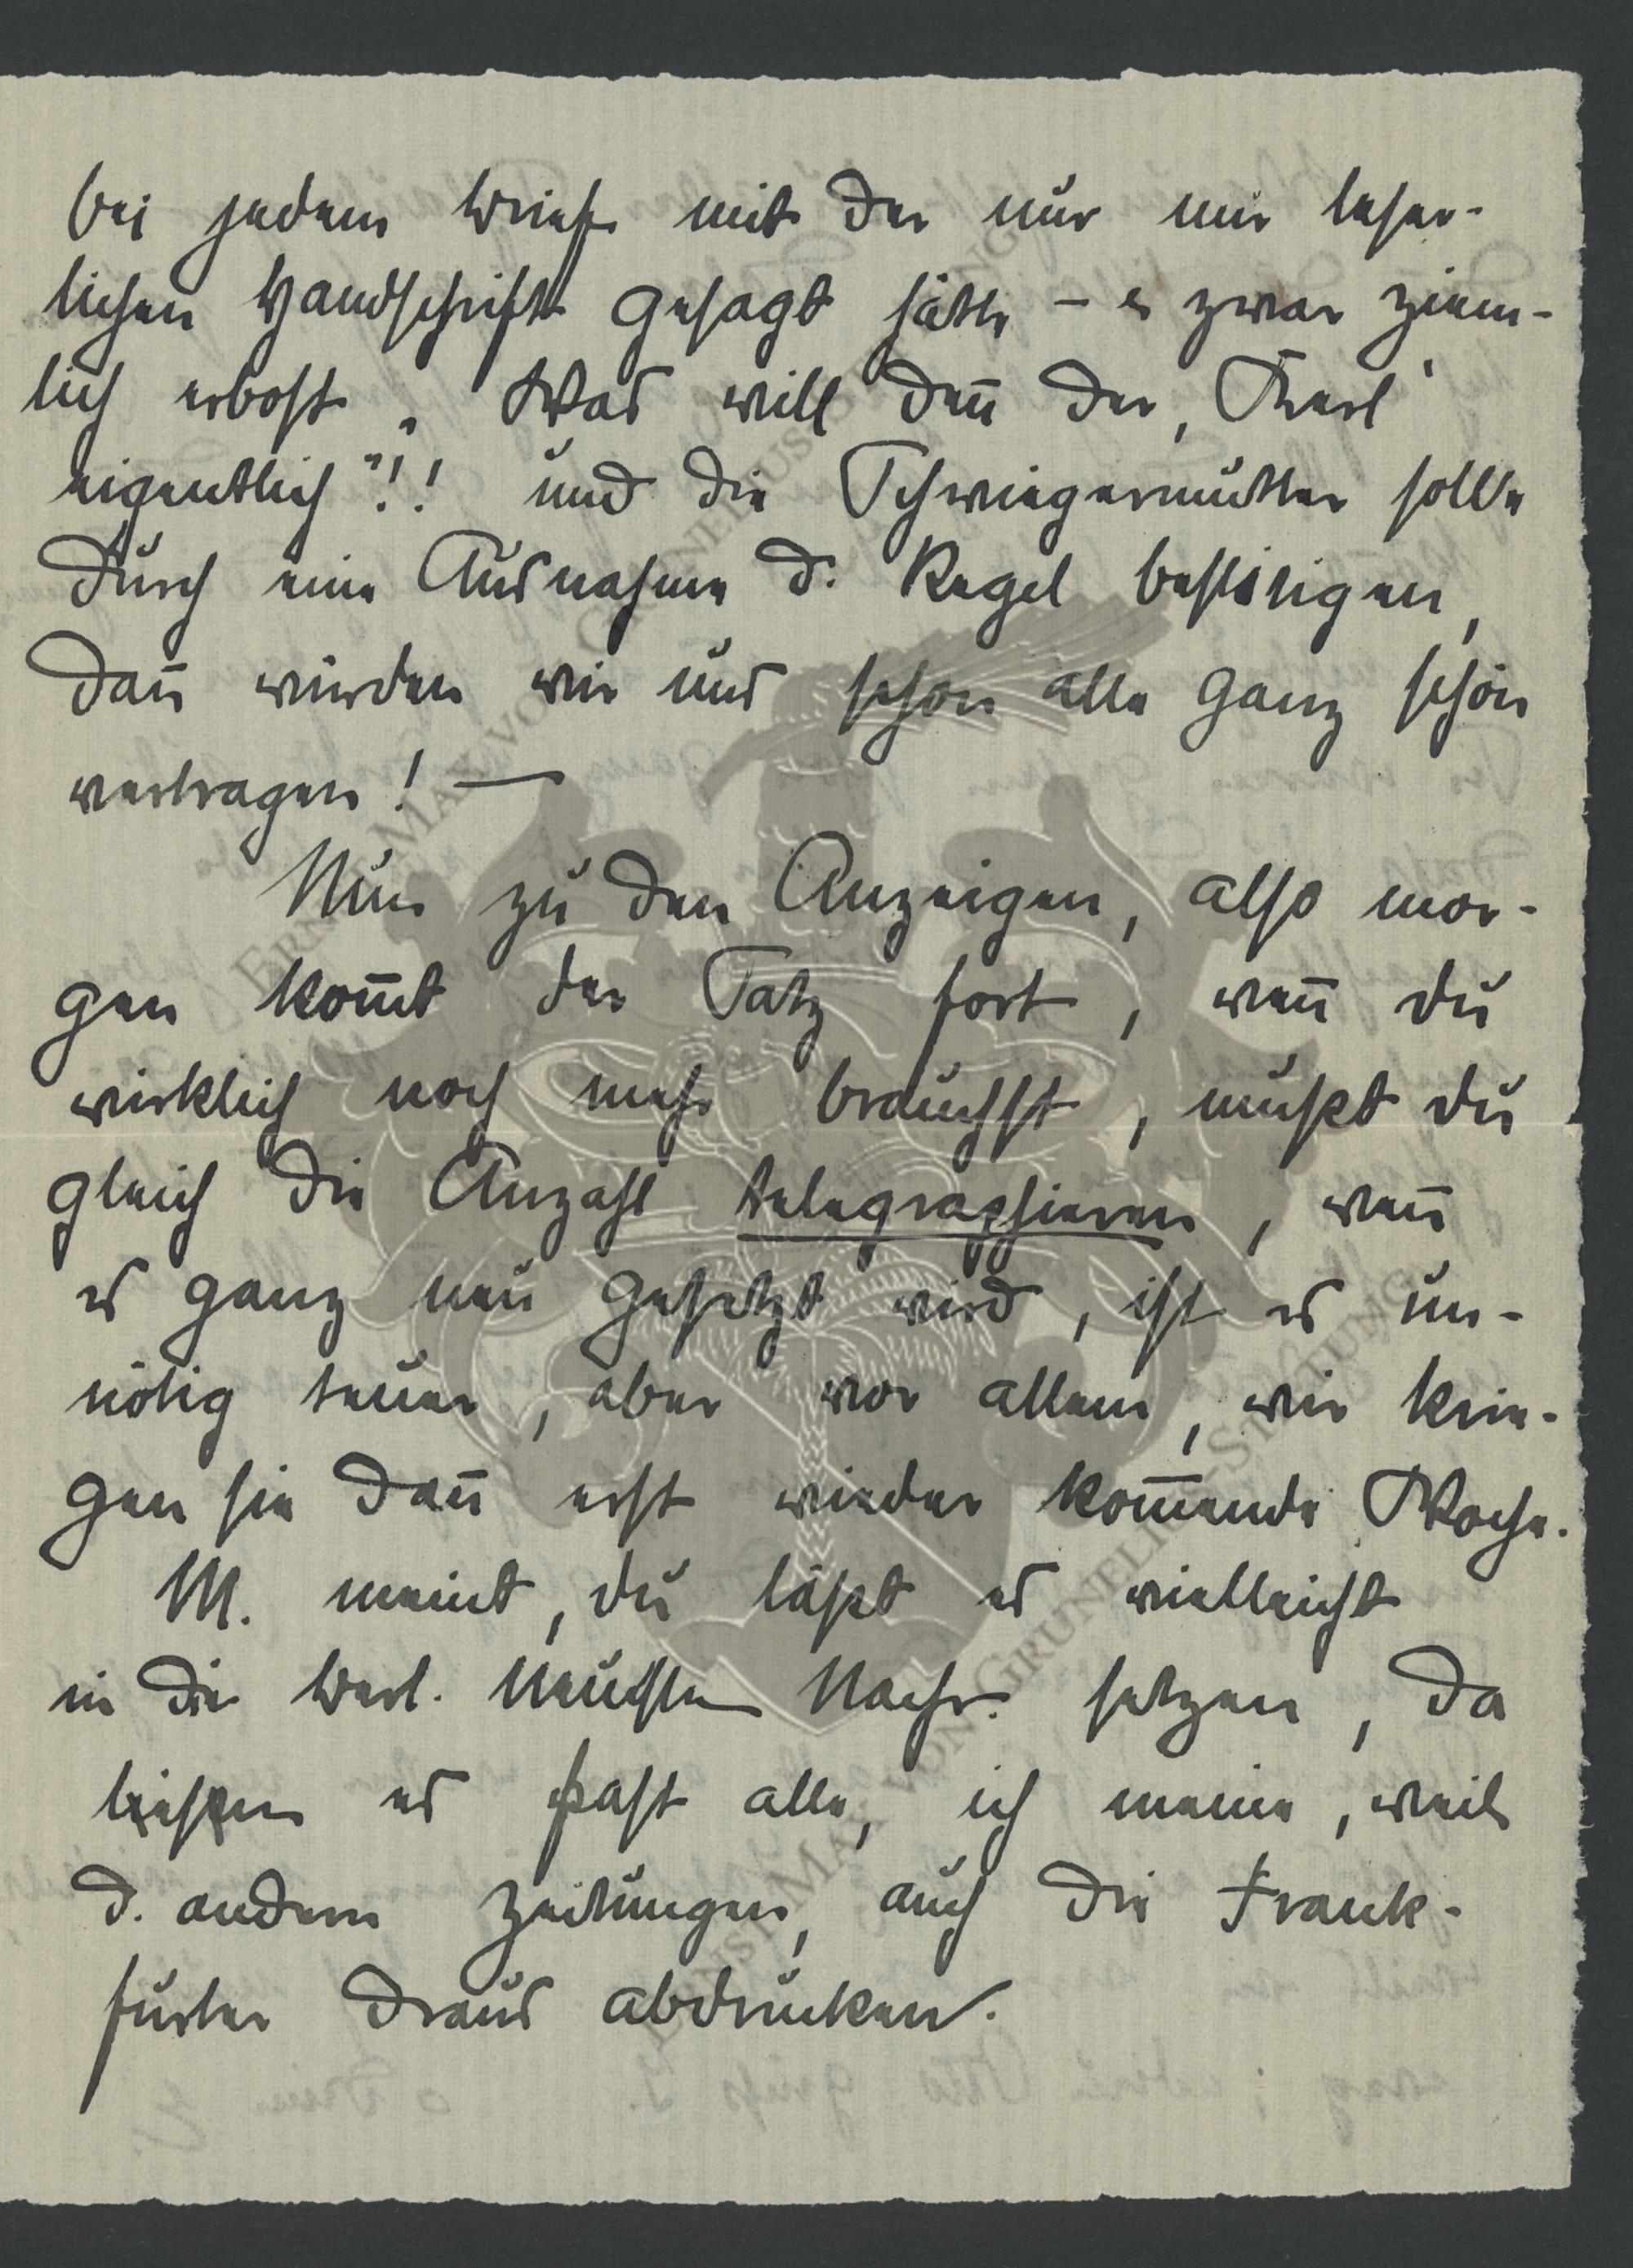 bei jedem Brief mit der nur mir leser-
lichen Handschrift gesagt hätte – u zwar ziem-
lich erbost „ Was will deñ der „Kerl“
eigentlich“!! und die Schwiegermutter solle
durch eine Ausnahme d. Regel bestätigen,
dañ würden wir uns schon alle ganz schön
vertragen! —
Nun zu den Anzeigen, also mor-
gen kom̄t der Satz fort, weñ du
wirklich noch mehr brauchst, mußt du
gleich die Anzahl telegraphieren, weñ
es ganz neu gesetzt wird, ist es un-
nötig teuer, aber vor allem, wir krie-
gen sie dañ erst wieder kom̄ende Woche.
M. meint, du läßt es vielleicht
in die Berl. Neusten Nachr. setzen, da
es fast alle, ich meine, weil
d. andern Zeitungen, auch die Frank-
furter draus abdrucken.
ERNST MAX VON GRUNELIUS STIFTUNG